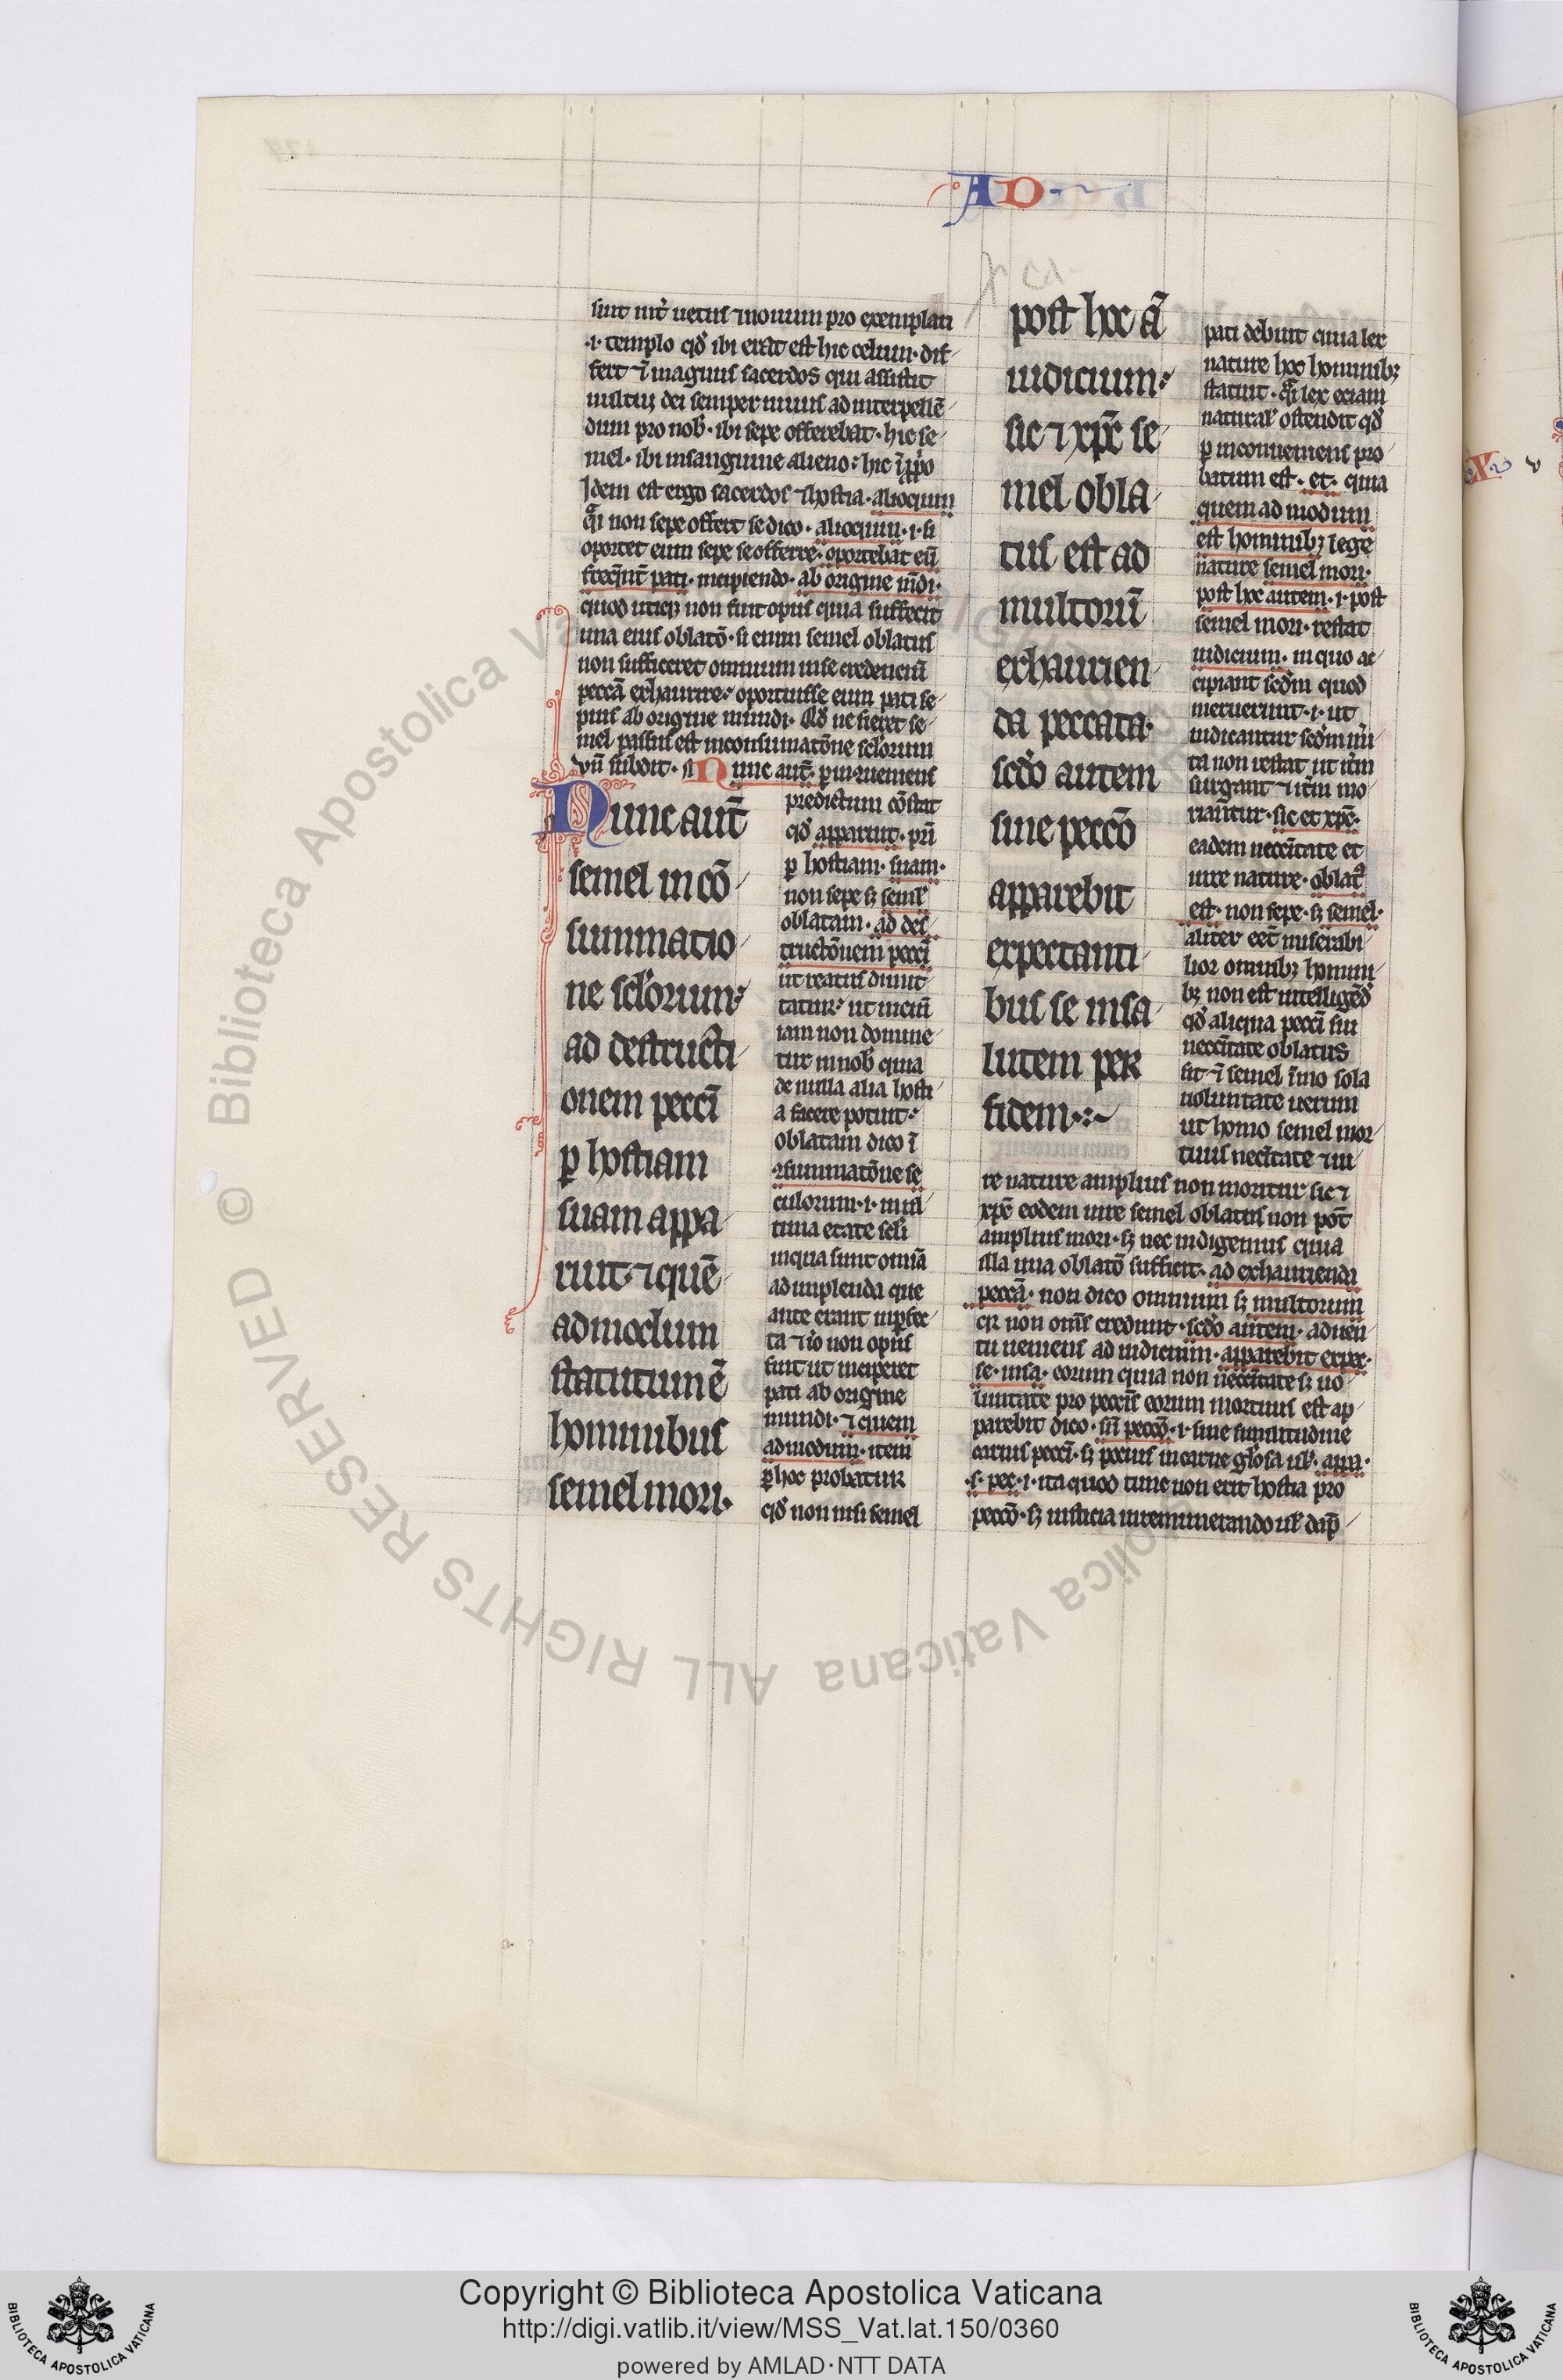 AD
sunt nr̄ uetus ⁊ nouum pro exemplari
·i· templo qd̓ ibi erat est hic celum· dif
fert ⁊̄ magnus sacerdos qui assistit
uultuı dei semper uiuus ad interpellē
dum pro nob̓· ibi sepe offerebat· hic se
mel· ibi in sanguine alieno: hic ī ꝓpo
Idem est ergo sacerdos ⁊ hostia· alioquin
q̄i non sepe offert se dico· alioquin·i·si
oportet eum sepe se offerre· oportebat eū
freq̄nt̄ pati· incipiendo· ab origine mūdi·
quod utiqꝫ non fuit opus quia suffecit
una eius oblatō· si enim semel oblatus
non sufficeret omnium in se credenciū
peccā exhaurire: oportuisse eum pati se
pius ab origine mundi· Qd̓ ne fieret se
mel passus est in consumatōne scl̓orum
Vn̄ subdit· Nunc aut̄· ꝑ inueniens
Nunc aut̄
semel in cō
summatio
ne scl̓orum:
ad destructi
onem pecci̅
ꝑ hostiam
suam appa
ruit· ⁊ quē
admodum
statutum ē
hominibus
semel mori·
predictum cōstat
qd̓ apparuit· pri̅
ꝑ hostiam· suam·
non sepe sꝫ semel̓
oblatam· ad des
tructōnem pecci̅
ut reatus dimit
tatur: ut uiciū
iam non domine
tur in nob̓ quia
de nulla alia hosti
a facere potuit:
oblatam dico ī
ꝯsummatōne se
culorum·i· in ul
tima etate scl̓i
in qua sunt omīa
adimplenda que
ante erant inꝑfec
ta ⁊ io̓ non opus
fuit ut inciperet
pati ab origine
mundi· ⁊ quem
admodum· item
ꝑ hoc probatur
qd̓ non nisi semel
post hoc ā
iudicium:
sic ⁊ xp̄c se
mel obla
tus est ad
multorū
exhaurien
da peccata·
scd̓o autem
sine peccō
apparebit
expectanti
bus se in sa
lutem per
fidem·:~
pati debuit quia lex
nature hoc hominibꝫ
statuit· q̄i lex eciam
natural̓ ostendit qd̓
ꝑ inconueniens pro
batum est· et· quia
quem ad modum
est hominibꝫ lege
nature semel mori·
post hoc autem·i·post
semel mori· restat
iudicium· in quo ac
cipiant scd̓m quod
meruerunt·i·ut
iudicantur scd̓m m̄i
ta non restat ut it̄m
surgant ⁊ it̄m mo
riantur· sic et xp̄c·
eadem necc̄itate et
iure nature· oblat̓
est· non sepe· sꝫ semel·
aliter eēt miserabi
lior omnibꝫ homini
bꝫ non est intelligēd̓
qd̓ aliqua pecci̅ sui
necc̄itate oblatus
sit ⁊̄ semel īmo sola
uoluntate uerum
ut homo semel mor
tuus necc̄itate ⁊ iu
re nature amplius non moritur sic ⁊
xp̄c eodem iure semel oblatus non pōt
amplius mori· sꝫ nec indigemus quia
illa una oblatō sufficit· ad exhaurienda
peccā· non dico omnium sꝫ multorum
qꝛ non om̄s credunt· scd̓o autem· aduen
tu ueniens ad iudicium· apparebit expec·
se· in sa· eorum quia non necc̄itate sꝫ uo
luntate pro pecc̄is eorum mortuus est ap
parebit dico· sn̄ peccō·i· sine similitudine
carnis pecci̅· sꝫ pocius in carne gl̓osa ul̓· appa·
·s· pec·i· ita quod tunc non erit hostia pro
peccō· sꝫ iusticia in remunerando ul̓ dāp
Copyright © Biblioteca Apostolica Vaticana
http://digi.vatlib.it/view/MSS_Vat.lat.150/0360
powered by AMLAD·NTT DATA
BIBLIOTECA APOSTOLICA VATICANA
BIBLIOTECA APOSTOLICA VATICANA
© Biblioteca Apostolica Vaticana ALL RIGHTS RESERVED